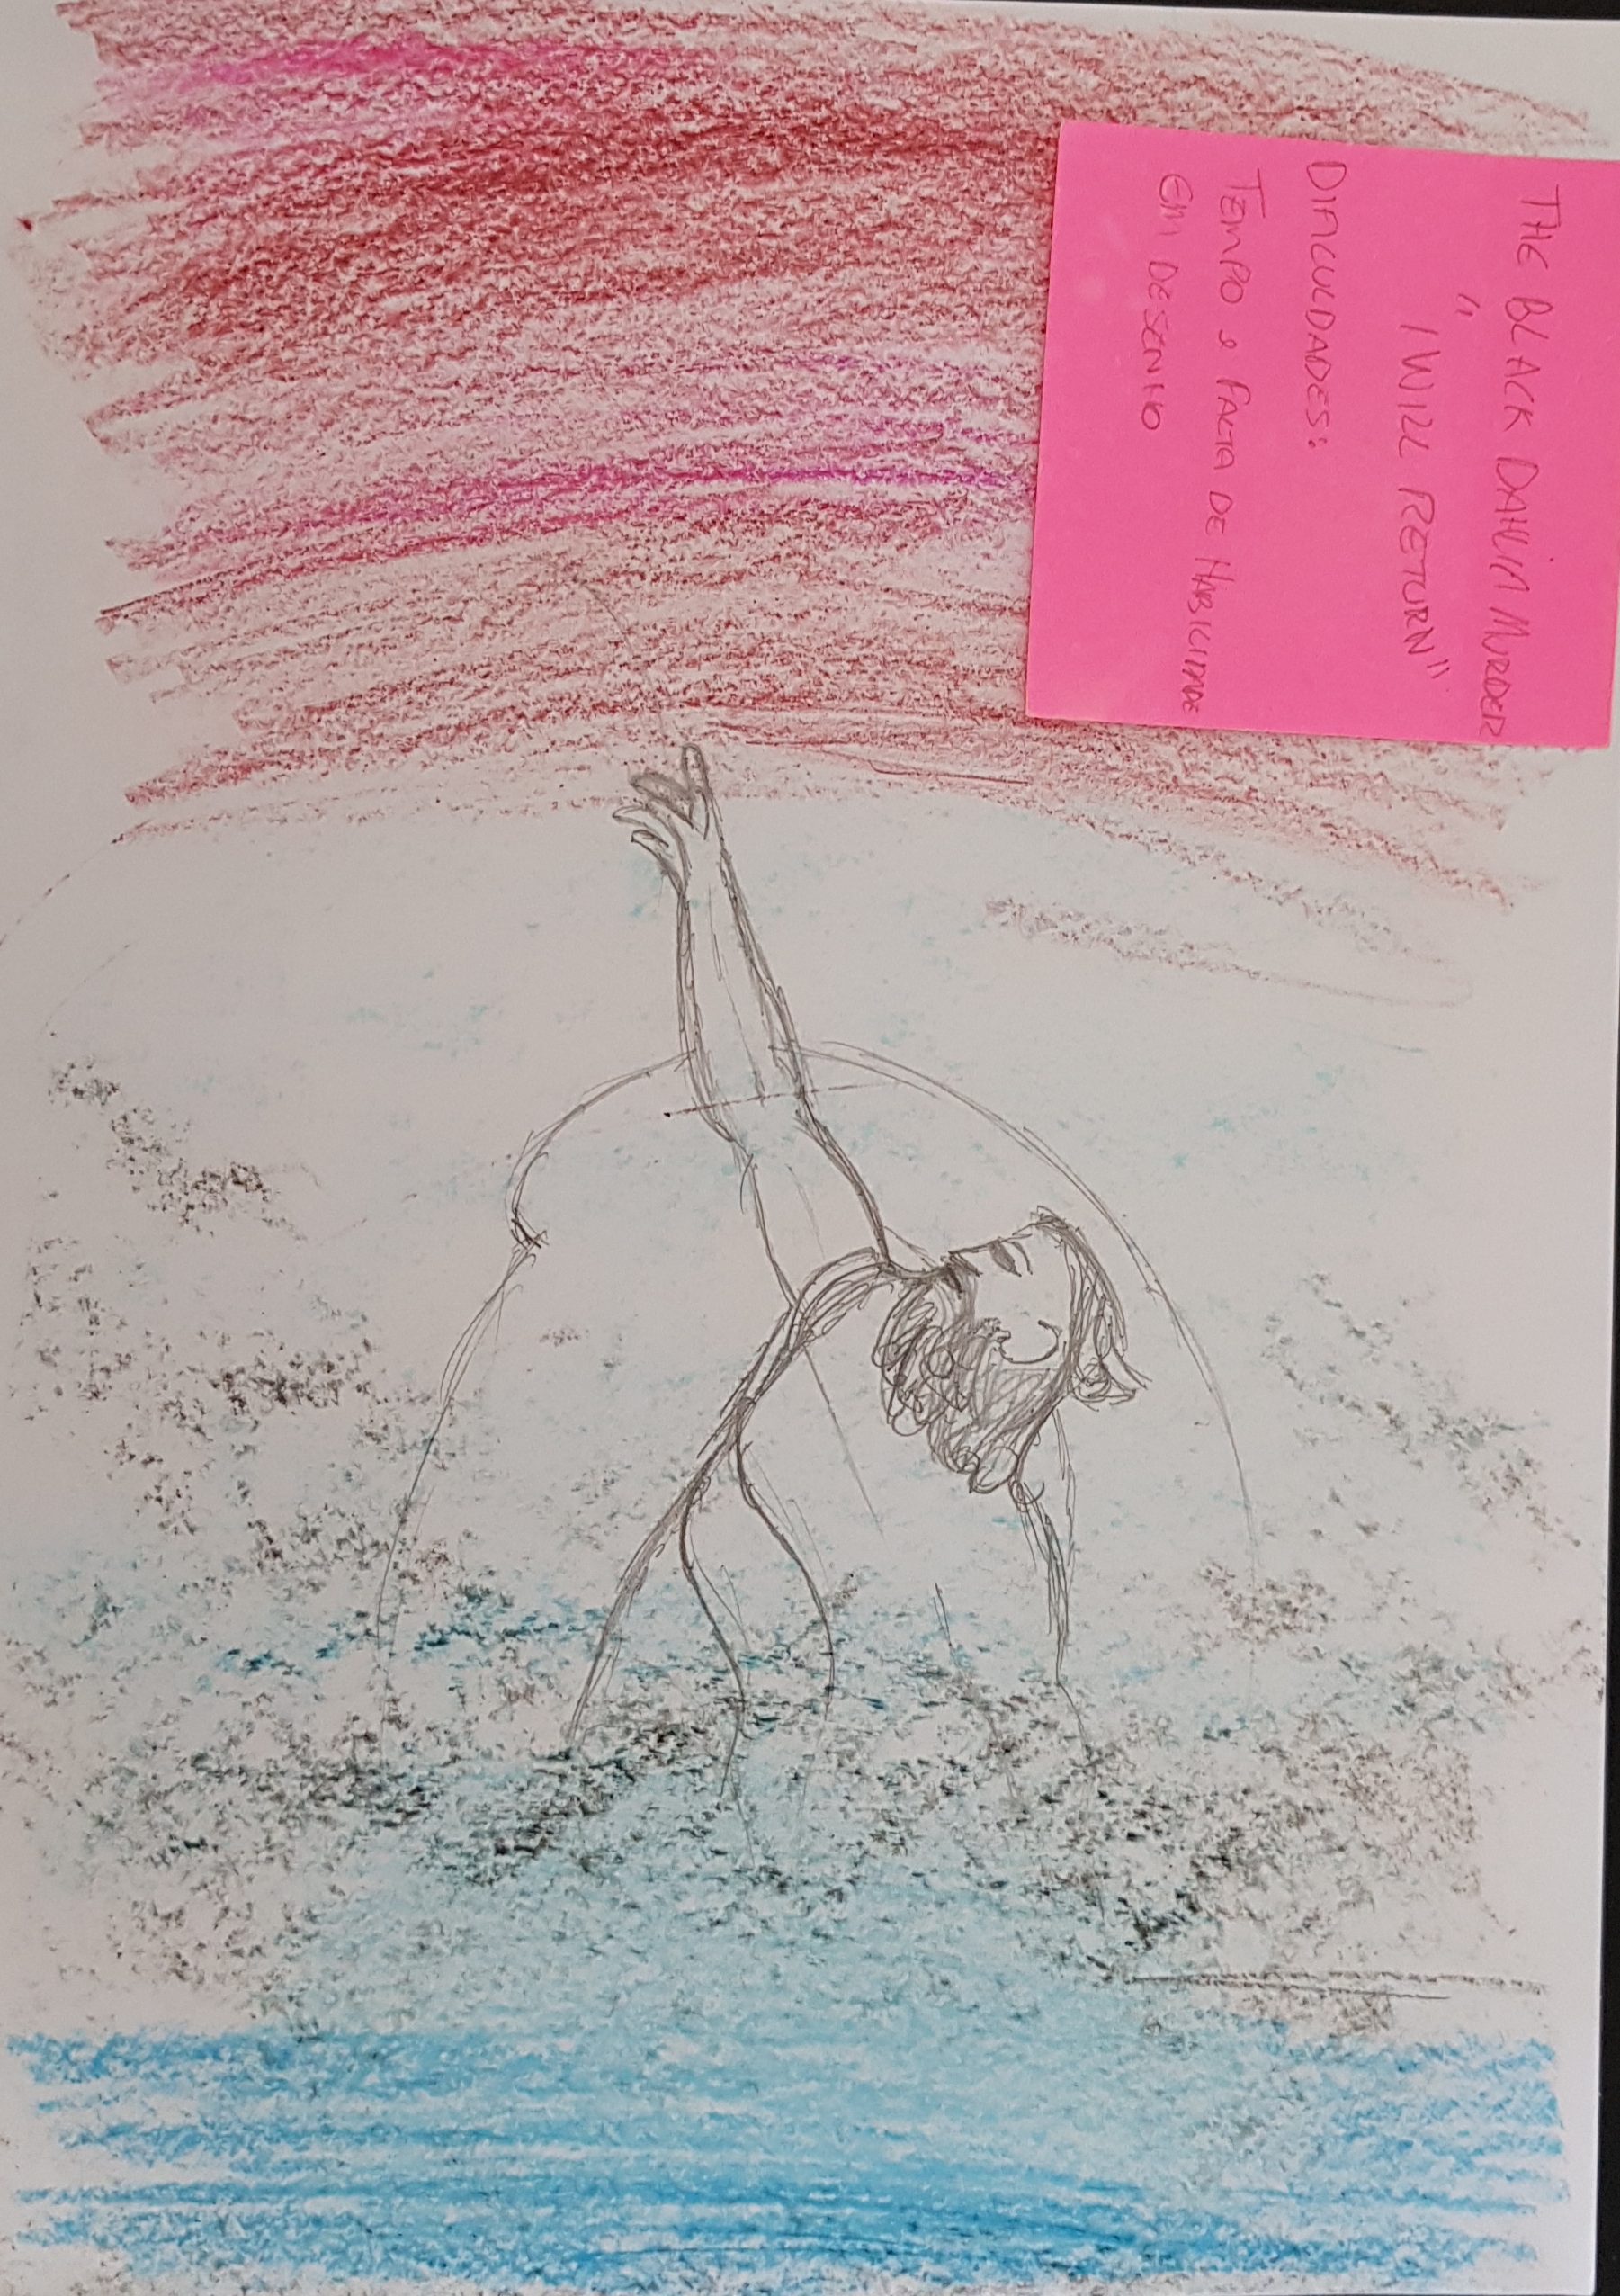 THE BLACK DAHLIA MURDER
"I WILL RETURN"
DIFICULDADES:
TEMPO & FALTA DE HABILIDADE
EM DESENHO